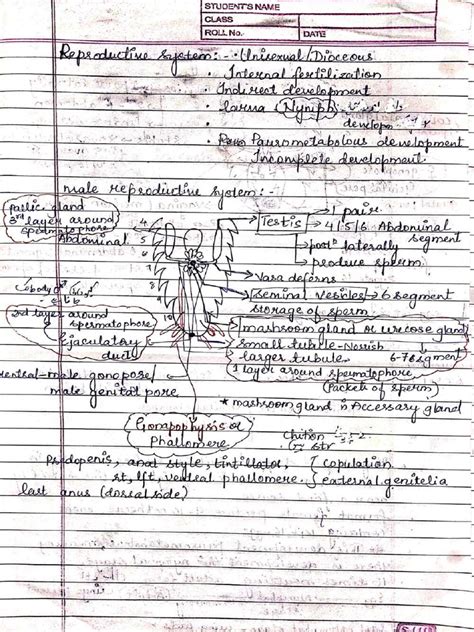 STUDENT'S NAME
CLASS
ROLL No. DATE
Reproductive System:- • Unisexual/Dioceous
• Internal fertilization
• Indirect development
• larva (Nymph)
develop
• Paurometabolous development
Incomplete development
male reproductive system:-
phallic gland
3rd layer around
spermatophore
Abdominal
4
5
6
Testis
1 pair
4/5/6 Abdominal
segment
postn laterally
produce sperm.
Vasa deferns
Seminal vesicles → 6 segment
Storage of sperm
2nd layer around
spermatophore
Ejaculatory
duct
mashroom gland or urecose gland
small tubule - Nourish
larger tubule. 6-7 segment
(1 layer around spermatophore
(Packets of sperm)
ventral-male gonopore/
male genital pore
* mashroom gland is Accessary gland
Gonapophysis or
Phallomere
Chiton
Psedopenis, anal style, tintillator, { copulation
rt, lft, ventral phallomere. { external genitelia
last anus (dorsal side)